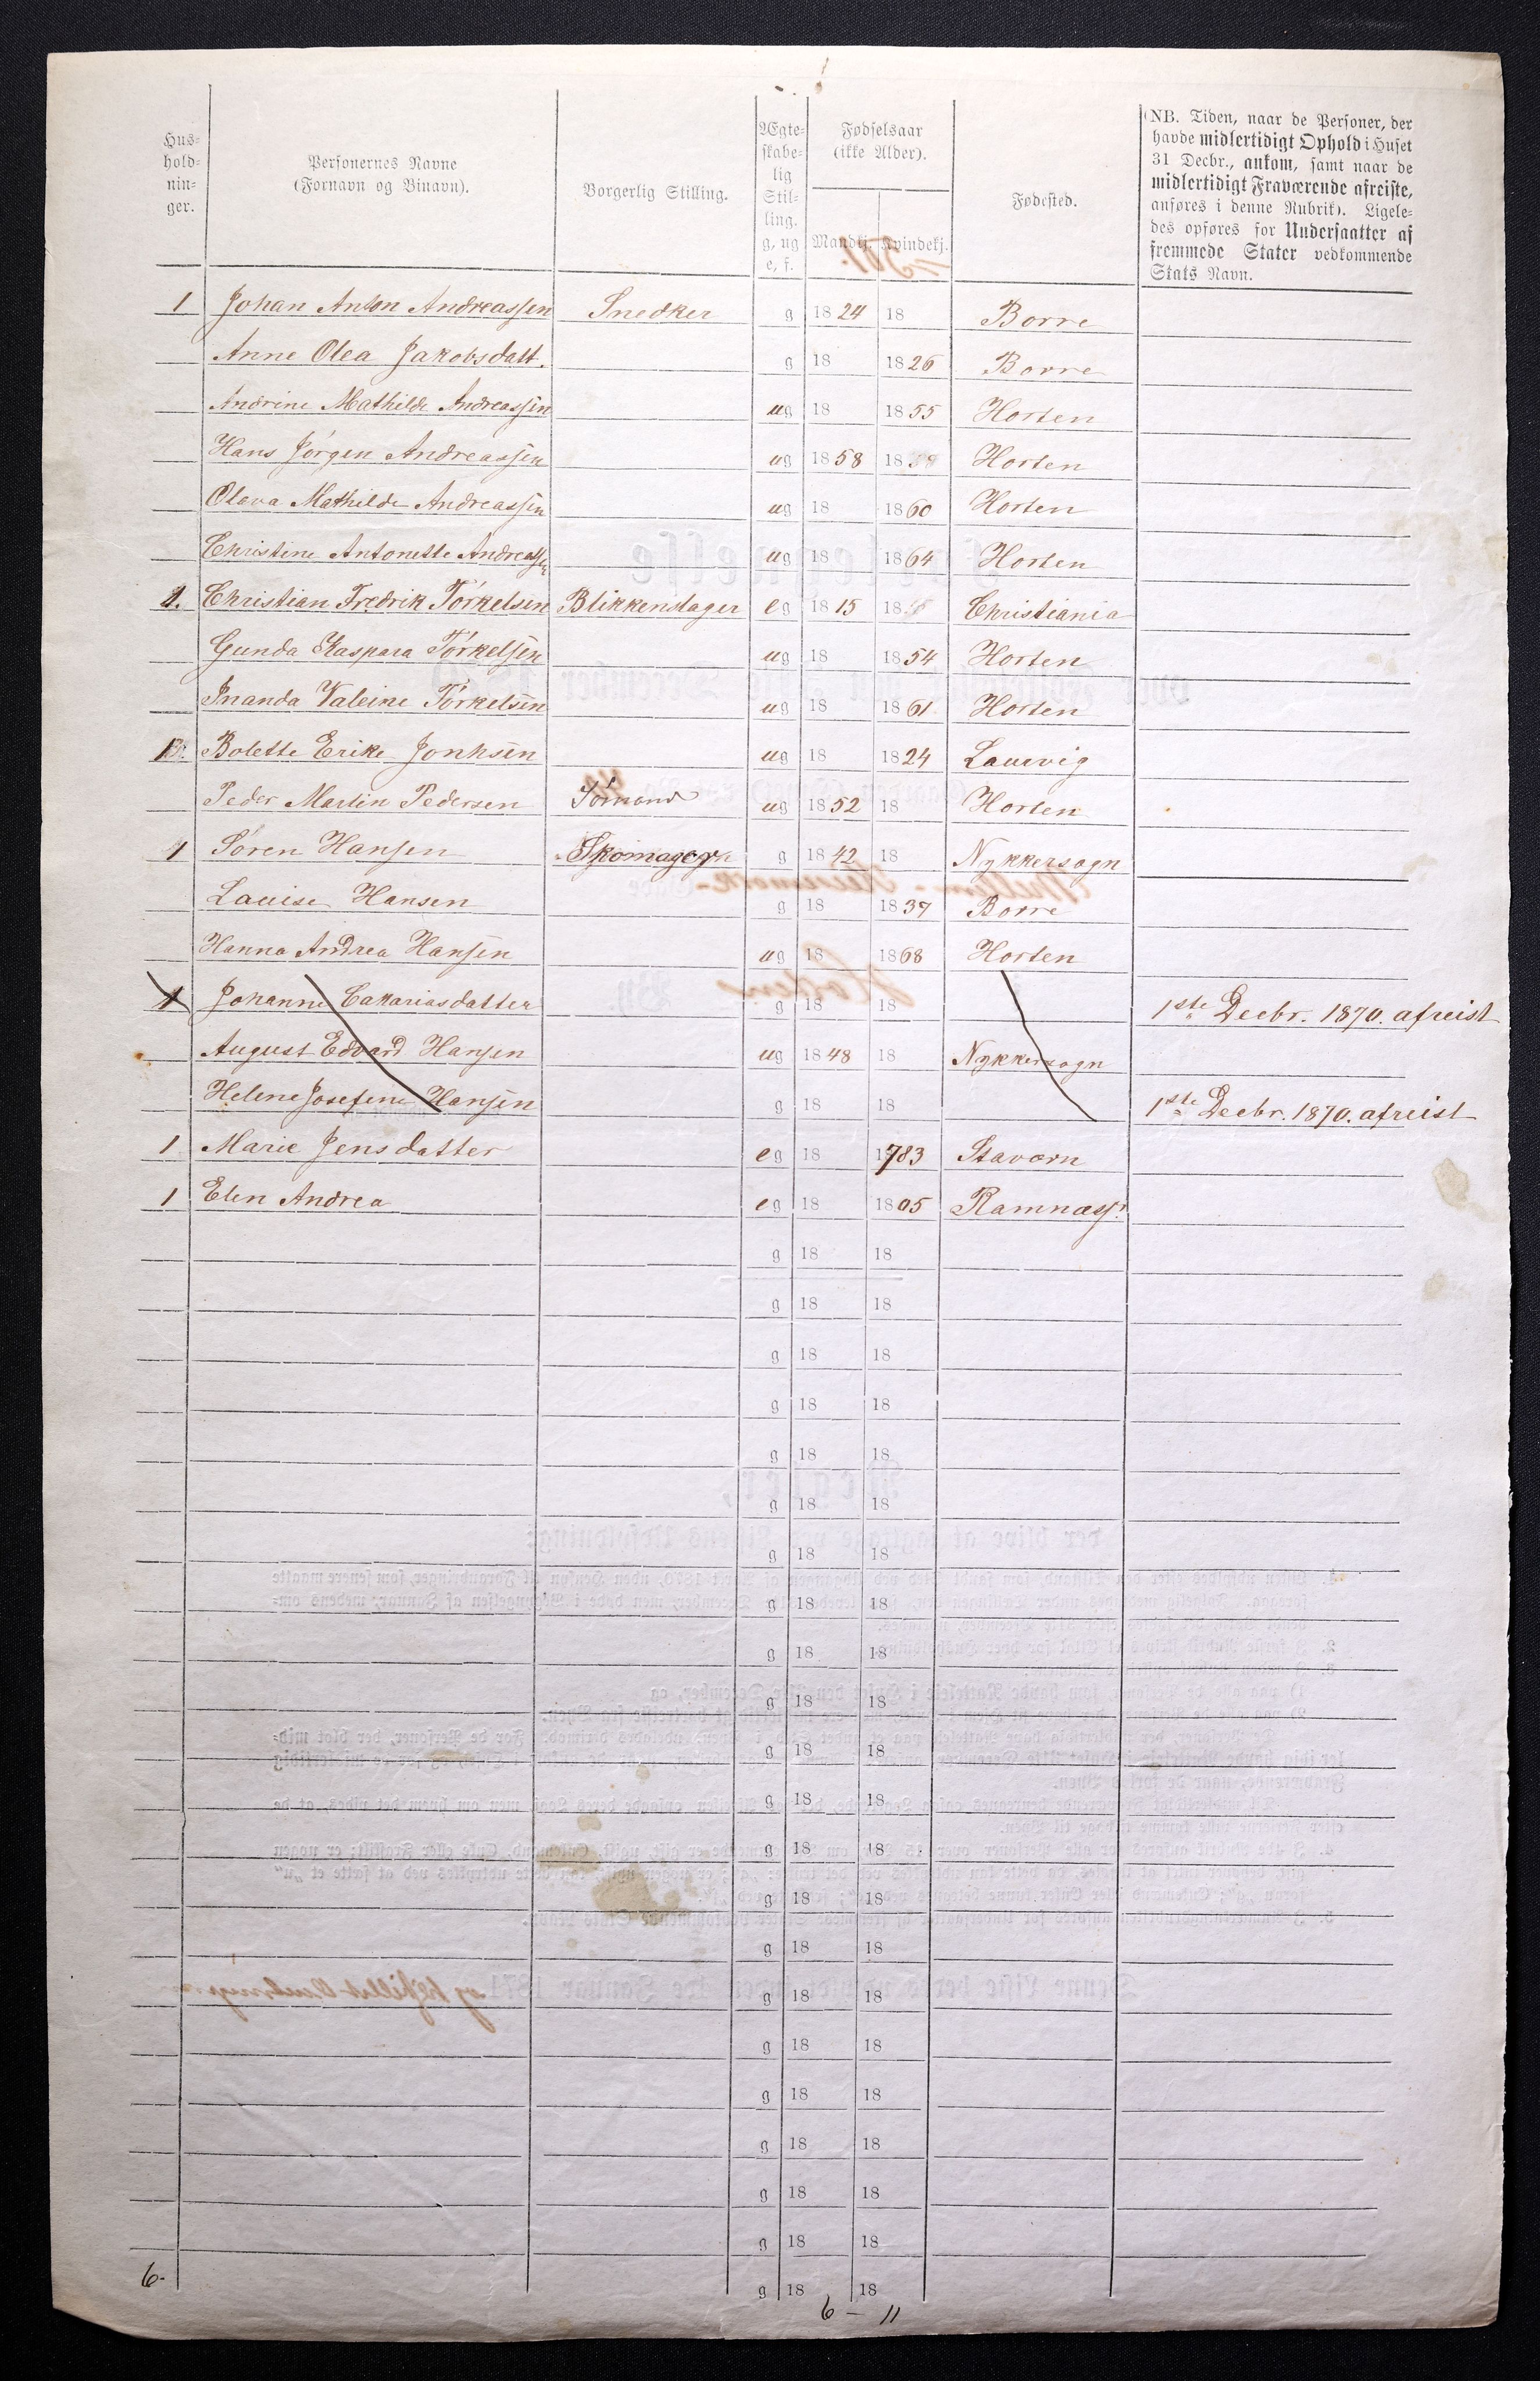 Hus-
hold-
nin-
ger.
Personernes Navne
(Fornavn og Binavn).
Borgerlig Stilling.
Ægte-
skabe-
lig
Stil-
ling.
g, ug
e, f.
Fødselsaar
(ikke Alder).
Mandkj. Kvindekj.
Fødested.
(NB. Tiden, naar de Personer, der
havde midlertidigt Ophold i Huset
31 Decbr., ankom, samt naar de
midlertidigt Fraværende afreiste,
anføres i denne Rubrik). Ligele-
des opføres for Undersaatter af
fremmede Stater vedkommende
Stats Navn.
1 Johan Anton Andreassen Snedker g 1824 18 Borre
Anne Olea Jakobsdatt. g 18 1826 Borre
Andrine Mathilde Andreassen ug 18 1855 Horten
Hans Jörgen Andreassen ug 1858 18 Horten
Olava Mathilde Andreassen ug 18 1860 Horten
Christine Antonette Andreassen ug 18 1864 Horten
1. Christian Fredrik Törkelsen Blikkenslager eg 1815 18 Christiania
Gunda Kaspara Törkelsen ug 18 1854 Horten
Inanda Valeine Törkelsen ug 18 1861 Horten
1 Bolette Erike Jonhsen ug 18 1824 Laurvig
Peder Martin Pedersen Sömand ug 1852 18 Horten
1 Sören Hansen Skomager g 1842 18 Nykkersogn
Lauise Hansen g 18 1837 Borre
Hanna Andrea Hansen ug 18 1868 Horten
1 Johanne Cakariasdatter g 18 18 1ste Decbr. 1870. afreist
August Edvard Hansen ug 1848 18 Nykkersogn
Helene Josefine Hansen g 18 18 1ste Decbr. 1870. afreist
1 Marie Jensdatter eg 18 1783 Stavern
1 Elen Andrea eg 18 1805 Ramnæss.
g 18 18
g 18 18
g 18 18
g 18 18
g 18 18
g 18 18
g 18 18
g 18 18
g 18 18
g 18 18
g 18 18
g 18 18
g 18 18
g 18 18
g 18 18
g 18 18
g 18 18
g 18 18
g 18 18
g 18 18
g 18 18
g 18 18
6.
6 – 11